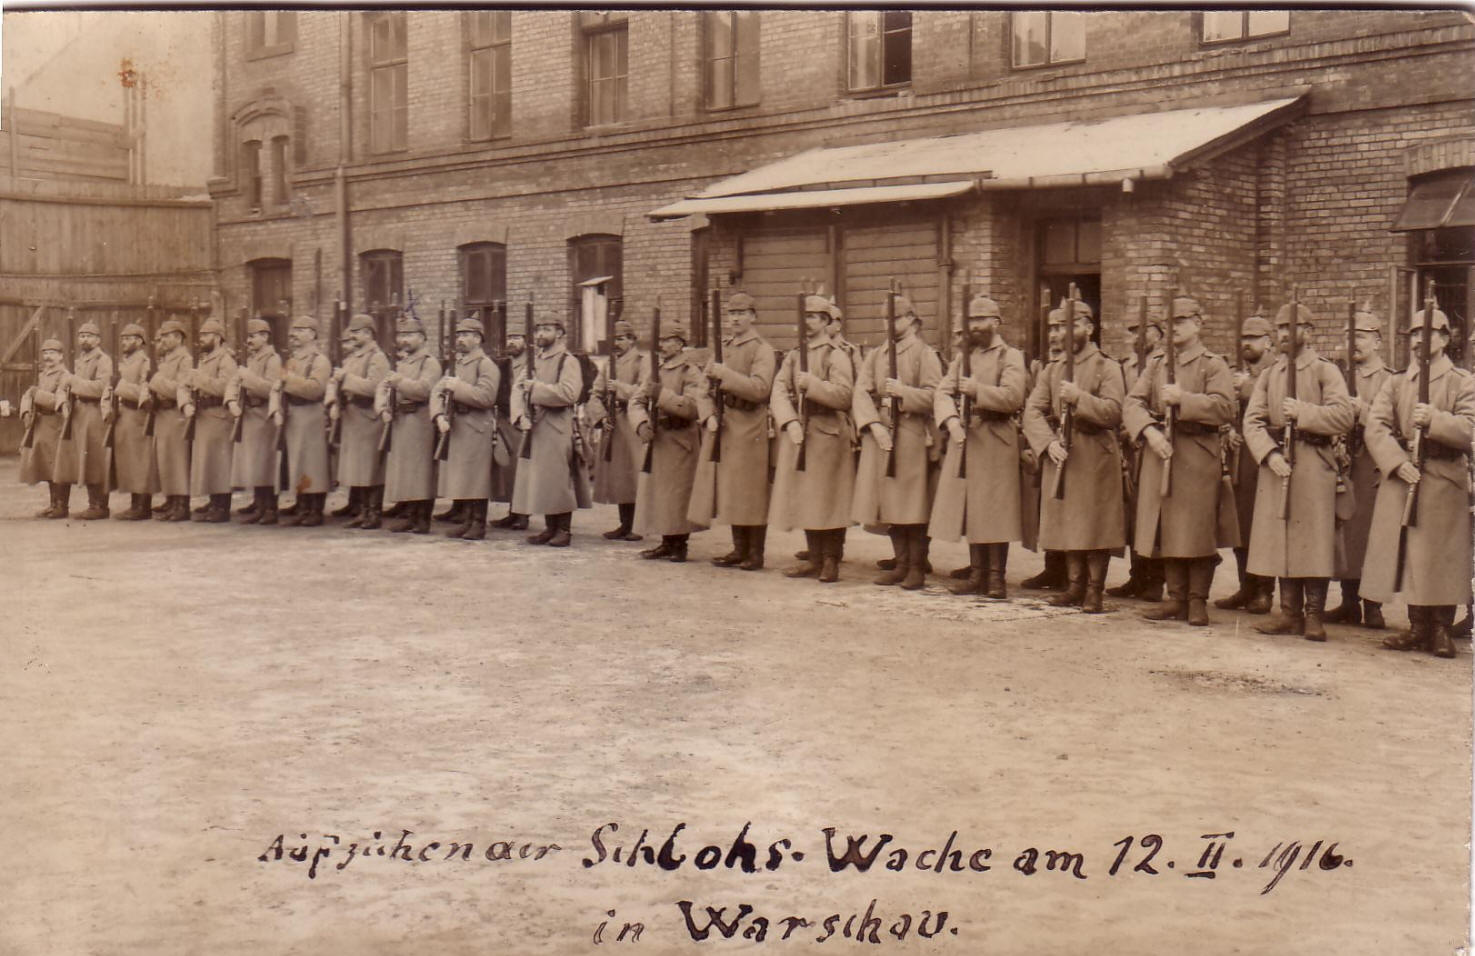 Aufzühen der Schlohs-Wache am 12. II. 1916.
in Warschau.